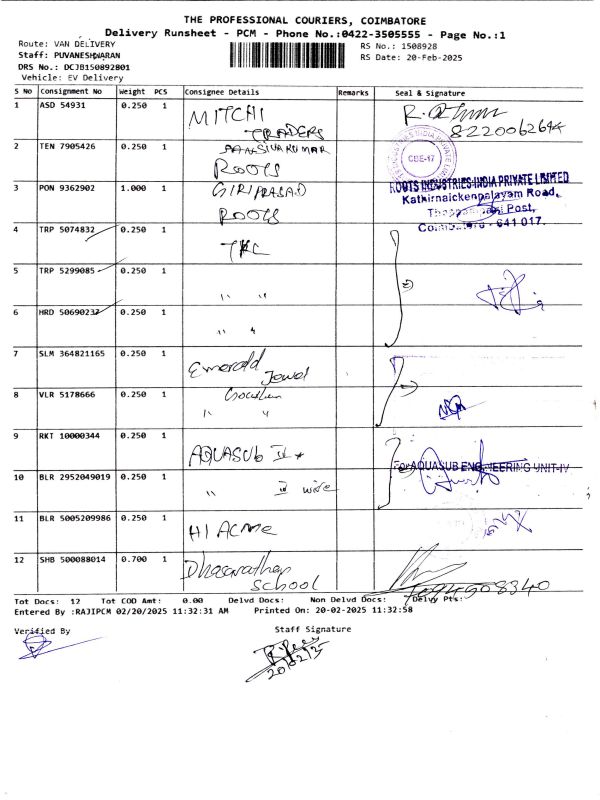 THE PROFESSIONAL COURIERS, COIMBATORE
Delivery Runsheet - PCM - Phone No.:0422-3505555 - Page No.:1
Route: VAN DELIVERY RS No.: 1508928
Staff: PUVANESHWARAN RS Date: 20-Feb-2025
DRS No.: DCJB150892801
Vehicle: EV Delivery
S No Consignment No Weight PCS Consignee Details Remarks Seal & Signature
1 ASD 54931 0.250 1 MITCHI
TRADERS
8220062694
2 TEN 7905426 0.250 1
ROOTS
CBE-17
3 PON 9362902 1.000 1 GIRIPRASAD
ROOTS
ROOTS INDUSTRIES INDIA PRIVATE LIMITED
Kathirnaickenpalayam Road,
Post,
641 017.
4 TRP 5074832 0.250 1
5 TRP 5299085 0.250 1 " "
6 HRD 50690237 0.250 1 " "
7 SLM 364821165 0.250 1 Emerald
Jewel
8 VLR 5178666 0.250 1
" "
9 RKT 10000344 0.250 1 AQUASUB IV
For AQUASUB ENGINEERING UNIT-IV
10 BLR 2952049019 0.250 1 "
11 BLR 5005209986 0.250 1 HI ACME
12 SHB 500088014 0.700 1 Dhasarathan
School
Tot Docs: 12 Tot COD Amt: 0.00 Delvd Docs: Non Delvd Docs: Delvy Pts:
Entered By :RAJIPCM 02/20/2025 11:32:31 AM Printed On: 20-02-2025 11:32:58
Verified By Staff Signature
20/02/25